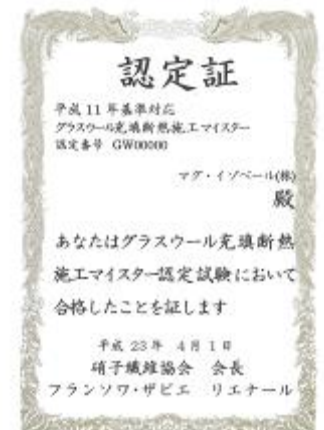 認定証
平成 11 年基準対応
グラスウール充填断熱施工マイスター
認定番号 GW00000
マグ・イゾベール(株)
殿
あなたはグラスウール充填断熱
施工マイスター認定試験において
合格したことを証します
平成 23年 4月1日
硝子繊維協会 会長
フランソワ・ザビエ リエナール